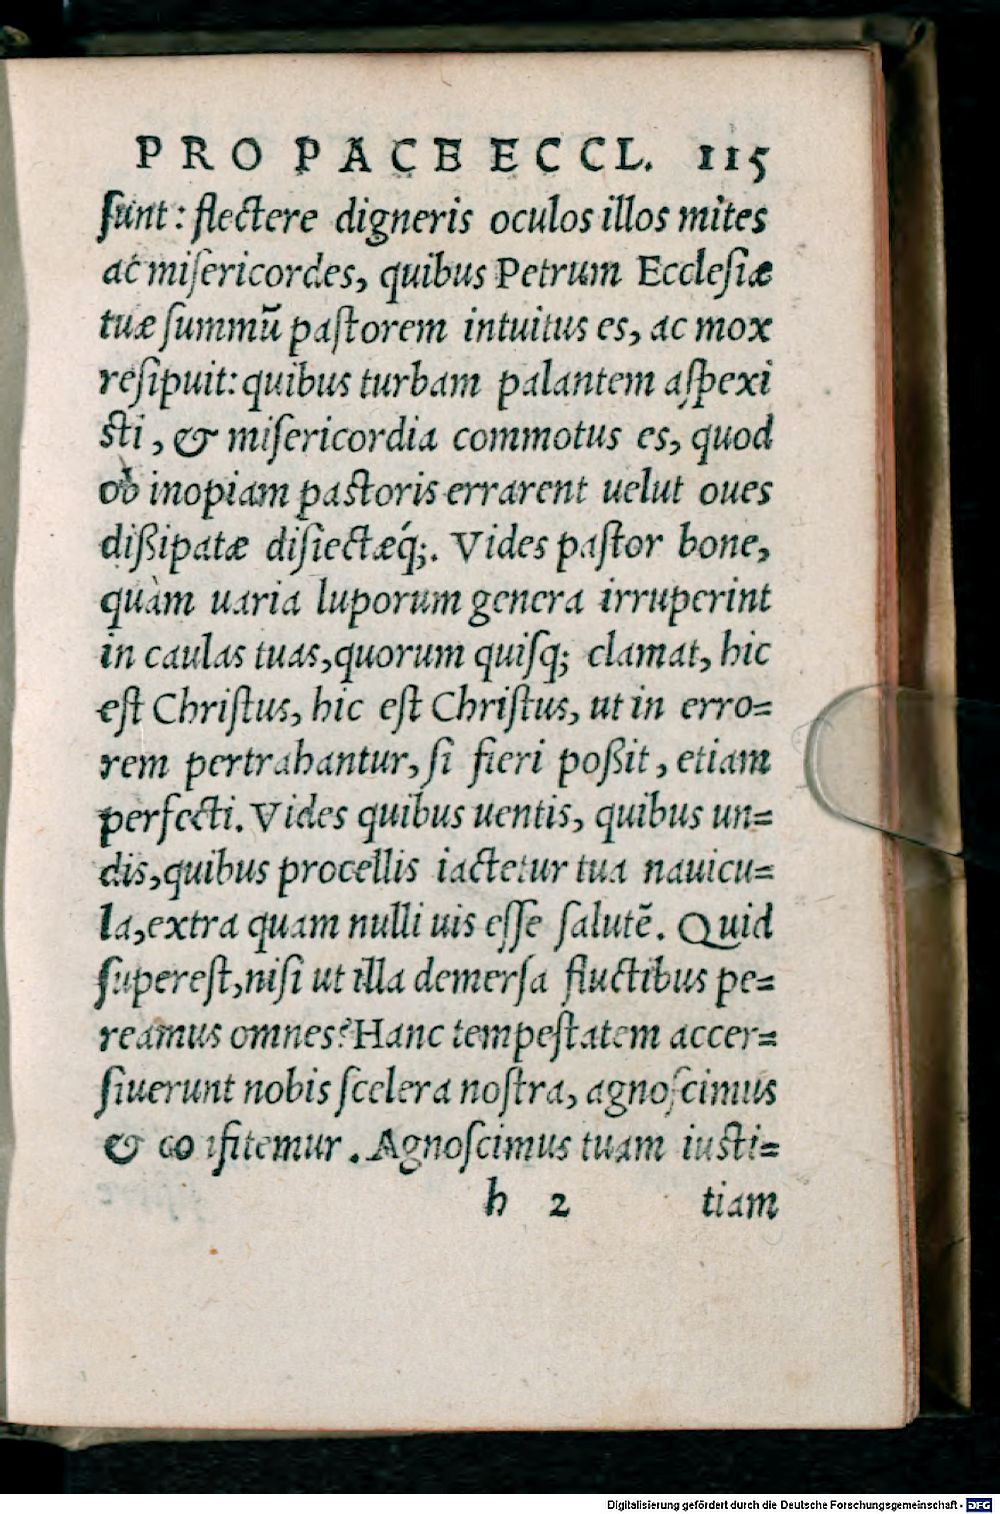 PRO PACE ECCL. 115
ſunt: flectere digneris oculos illos mites
ac miſericordes, quibus Petrum Eccleſiæ
tuæ ſummũ paſtorem intuitus es, ac mox
reſipuit: quibus turbam palantem aſpexi
ſti, & miſericordia commotus es, quod
ob inopiam paſtoris errarent uelut oues
dißipatæ diſiectæq́;. Vides paſtor bone,
quàm uaria luporum genera irruperint
in caulas tuas, quorum quiſq; clamat, hic
eſt Chriſtus, hic eſt Chriſtus, ut in erro=
rem pertrahantur, ſi fieri poßit, etiam
perfecti. Vides quibus uentis, quibus un=
dis, quibus procellis iactetur tua nauicu=
la, extra quam nulli uis eſſe ſalutẽ. Quid
ſupereſt, niſi ut illa demerſa fluctibus pe=
reamus omnes? Hanc tempeſtatem accer=
ſiuerunt nobis ſcelera noſtra, agnoſcimus
& cõfitemur. Agnoſcimus tuam iuſti=
h 2 tiam
Digitalisierung gefördert durch die Deutsche Forschungsgemeinschaft - DFG